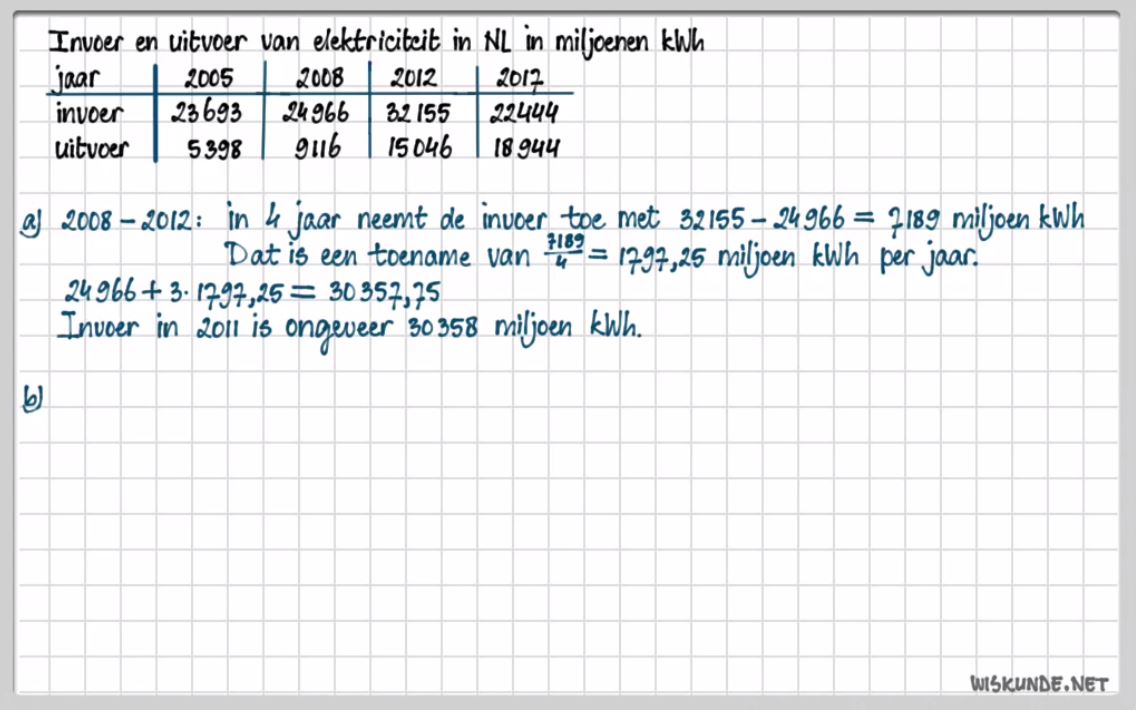 Invoer en uitvoer van elektriciteit in NL in miljoenen kWh
jaar 2005 2008 2012 2017
invoer 23693 24966 32155 22444
uitvoer 5398 9116 15046 18944
a) 2008 – 2012: in 4 jaar neemt de invoer toe met 32155 – 24966 = 7189 miljoen kWh
Dat is een toename van 7189/4 = 1797,25 miljoen kWh per jaar.
24966 + 3 · 1797,25 = 30357,75
Invoer in 2011 is ongeveer 30358 miljoen kWh.
b)
WISKUNDE.NET